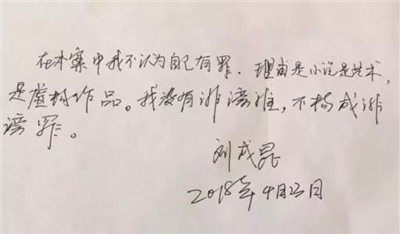 在本案中我不认为自己有罪。理由是小说是艺术,
是虚构作品。我没有诽谤谁,不构成诽
谤罪。
刘成昆
2018年4月23日